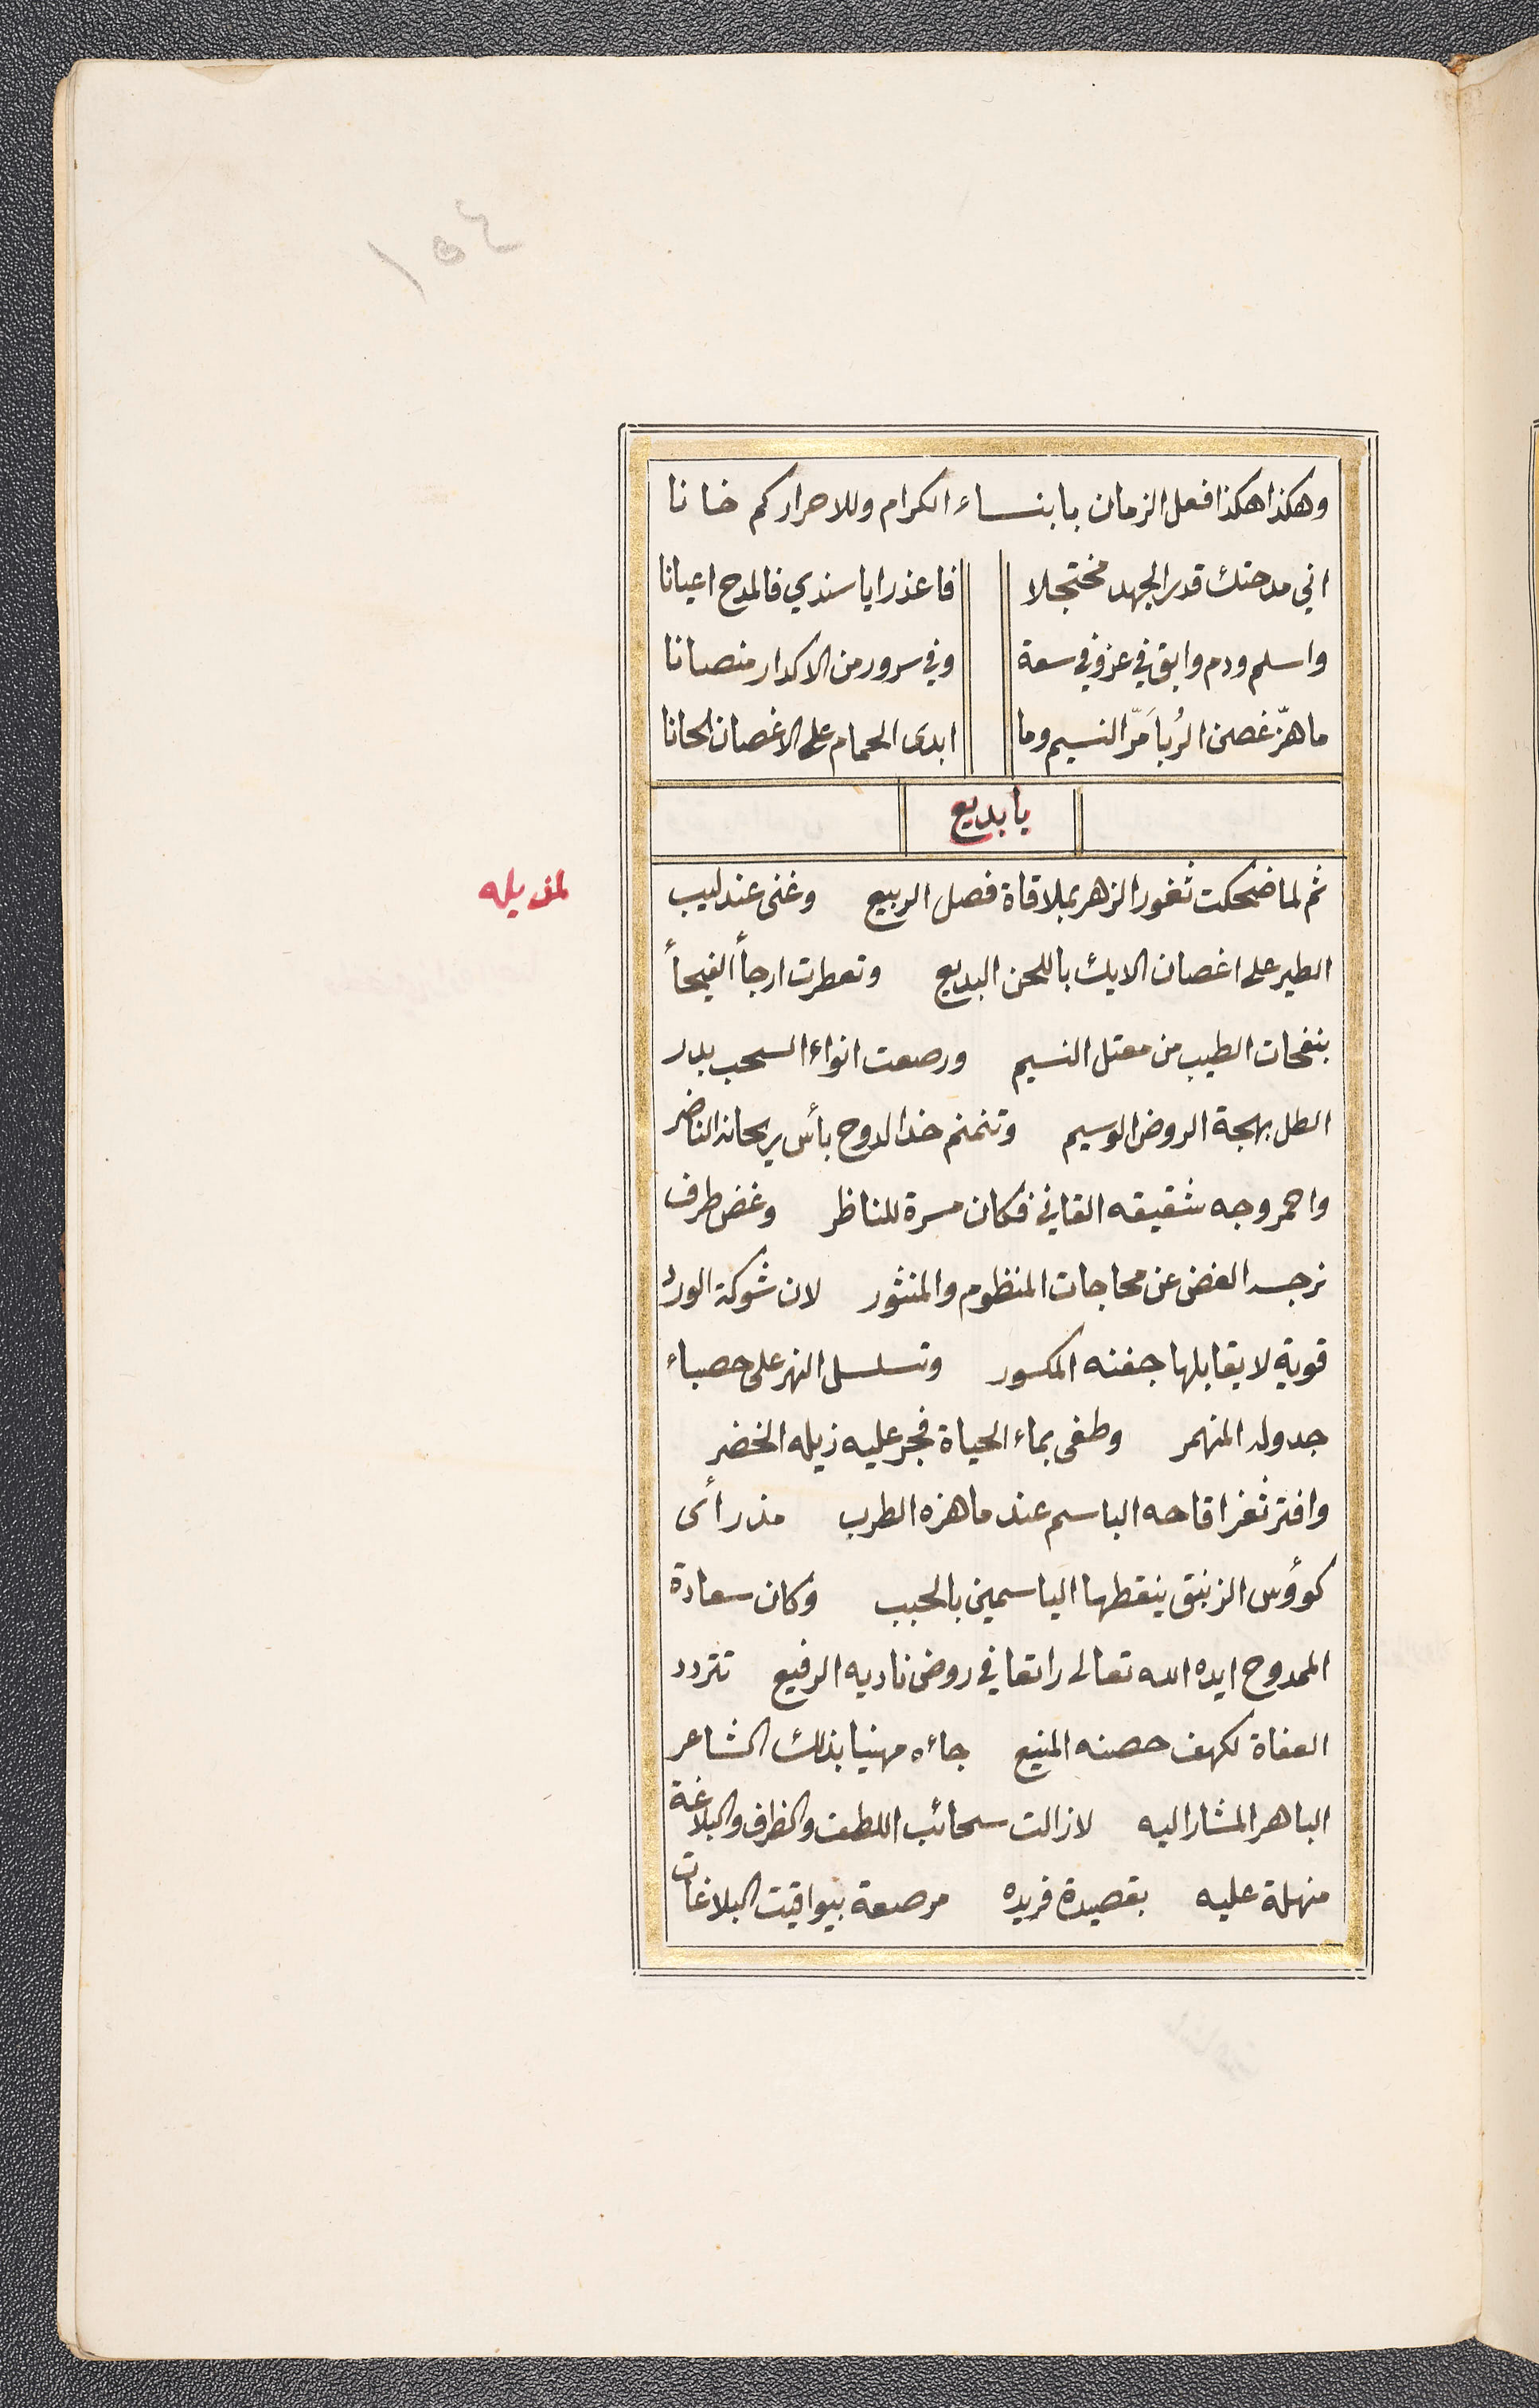 ١٥٤
وهكذا هكذا فعل الزمان بابنساء الكرام وللاحرار كم خانا
اني مدحتك قدر الجهد مختجلا فاعذر ايا سندي فالمدح اعيانا
واسلم ودم وابق في عز وفي سعة وفي سرور من الاكدار منصانا
ما هزّ غصن الرُبا مَرّ النسيم وما ابدى الحمام على الاغصان الحانا
يا بديع
ثم لما ضحكت ثغور الزهر بملاقاة فصل الربيع وغنى عندليب
لمذيله
الطير على اغصان الايك باللحن البديع وتعطرت ارجأ الفيحأ
بنفحات الطيب من معتل النسيم ورصعت انواء السحب بدر
الطل بهجة الروض الوسيم وتنمنم خد الدوح بأس ريحانه الناضر
واحمر وجه شقيقه القاني فكان مسرة للناظر وغض طرف
نرجسه الغض عن محاجات المنظوم والمنثور لان شوكة الورد
قوية لا يقابلها جفنه المكسور وتسلسل النهر على حصباء
جدوله المنهمر وطفى بماء الحياة فجر عليه ذيله الخضر
وافتر ثغر اقاحه الباسم عند ما هزه الطرب مذ رأى
كوؤس الزنبق ينقطها الياسمين بالحبب وكان سعادة
الممدوح ايده الله تعالى راتعا في روض ناديه الرفيع تتردد
العفاة لكهف حصنه المنيع جاءه مهنيا بذلك الشاعر
الباهر المشار اليه لا زالت سحائب اللطف والظراف والبلاغة
منهلة عليه بقصيدة فريده مرصعة بيواقيت البلاغات